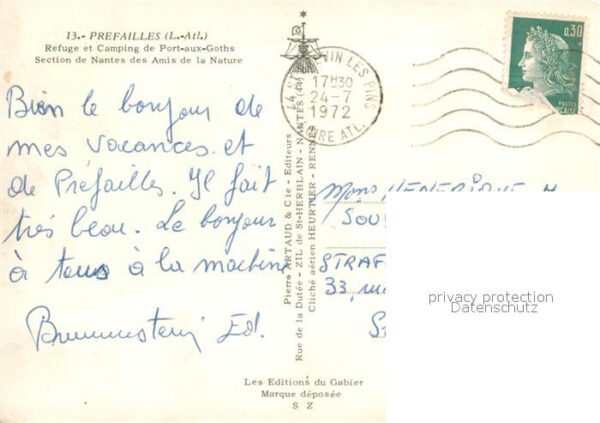 13.- PREFAILLES (L.-Atl.)
Refuge et Camping de Port-aux-Goths
Section de Nantes des Amis de la Nature
Bien le bonjour de
mes vacances et
de Préfailles. Il fait
très beau. Le bonjour
à tous à la machine
Ed.
Pierre ARTAUD & Cie - Editeurs
Rue de la Dutée - ZIL de St-HERBLAIN - NANTES (44)
Cliché aérien HEURTIER - RENNES
Les Editions du Gabier
Marque déposée
S Z
44 ST VIN LES PINS
17H30
24-7
1972
IRE ATL.
0,30
POSTES
Mons HENRIQUE M
SOU
STRAF
33, rue
S
privacy protection
Datenschutz